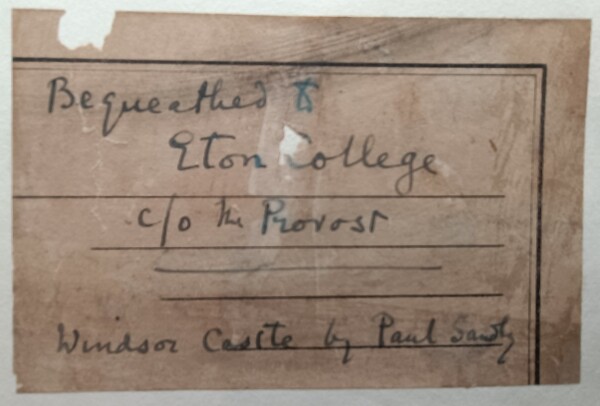 Bequeathed to
Eton College
c/o the Provost
Windsor Castle by Paul Sandby